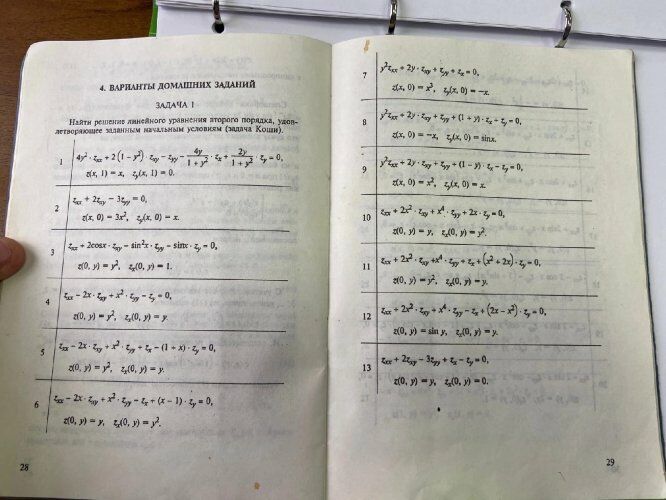 4. ВАРИАНТЫ ДОМАШНИХ ЗАДАНИЙ
ЗАДАЧА 1
Найти решение линейного уравнения второго порядка, удов-
летворяющее заданным начальным условиям (задача Коши).
1 4y² · z_xx + 2(1 − y²) · z_xy − z_yy − 4y/(1 + y²) · z_x + 2y/(1 + y²) · z_y = 0,
z(x, 1) = x, z_y(x, 1) = 0.
2 z_xx + 2z_xy − 3z_yy = 0,
z(x, 0) = 3x², z_y(x, 0) = x.
3 z_xx + 2cosx · z_xy − sin²x · z_yy − sinx · z_y = 0,
z(0, y) = y², z_x(0, y) = 1.
4 z_xx − 2x · z_xy + x² · z_yy − z_y = 0,
z(0, y) = y², z_x(0, y) = y.
5 z_xx − 2x · z_xy + x² · z_yy + z_x − (1 + x) · z_y = 0,
z(0, y) = y², z_x(0, y) = y.
6 z_xx − 2x · z_xy + x² · z_yy − z_x + (x − 1) · z_y = 0,
z(0, y) = y, z_x(0, y) = y².
28
7 y²z_xx + 2y · z_xy + z_yy + z_x = 0,
z(x, 0) = x³, z_y(x, 0) = −x.
8 y²z_xx + 2y · z_xy + z_yy + (1 + y) · z_x + z_y = 0,
z(x, 0) = −x, z_y(x, 0) = sinx.
9 y²z_xx + 2y · z_xy + z_yy + (1 − y) · z_x − z_y = 0,
z(x, 0) = x², z_y(x, 0) = x.
10 z_xx + 2x² · z_xy + x⁴ · z_yy + 2x · z_y = 0,
z(0, y) = y, z_x(0, y) = y².
11 z_xx + 2x² · z_xy + x⁴ · z_yy + z_x + (x² + 2x) · z_y = 0,
z(0, y) = y², z_x(0, y) = y.
12 z_xx + 2x² · z_xy + x⁴ · z_yy − z_x + (2x − x²) · z_y = 0,
z(0, y) = sin y, z_x(0, y) = y.
13 z_xx + 2z_xy − 3z_yy + z_x − z_y = 0,
z(0, y) = y, z_x(0, y) = 0.
29